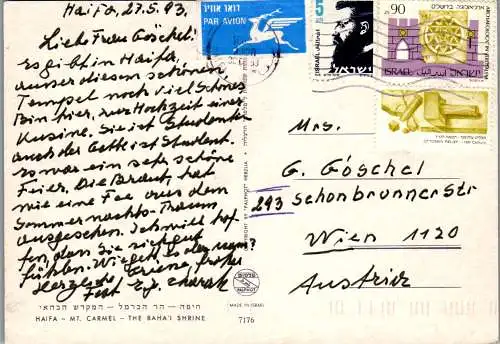 Haifa, 27.5.93,
Liebe Frau Göschel!
Es gibt in Haifa,
ausser diesem schönen,
Tempel noch viel Schönes
Bin hier, zur Hochzeit einer
Kusine. Sie ist Studentin
auch der Gatte ist Student.
Es war ein sehr schöne
Feier. Die Braut hat
wie eine Fee aus dem
Sommernachts-Traum,
ausgesehen. Ich will hof-
fen, dass Sie sich gut
fühlen. Wie geht es der
Herzliche Grüsse, frohes
Fest
חיפה - הר הכרמל - המקדש הבהאי
HAIFA - MT. CARMEL - THE BAHA'I SHRINE
PALPHOT HERZLIA
MADE IN ISRAEL
7176
דואר אויר
PAR AVION
5
ISRAEL
ישראל
0.90
ISRAEL
ישראל
Mrs.
G. Göschel
293 Schönbrunnerstr
Wien 1120
Austria